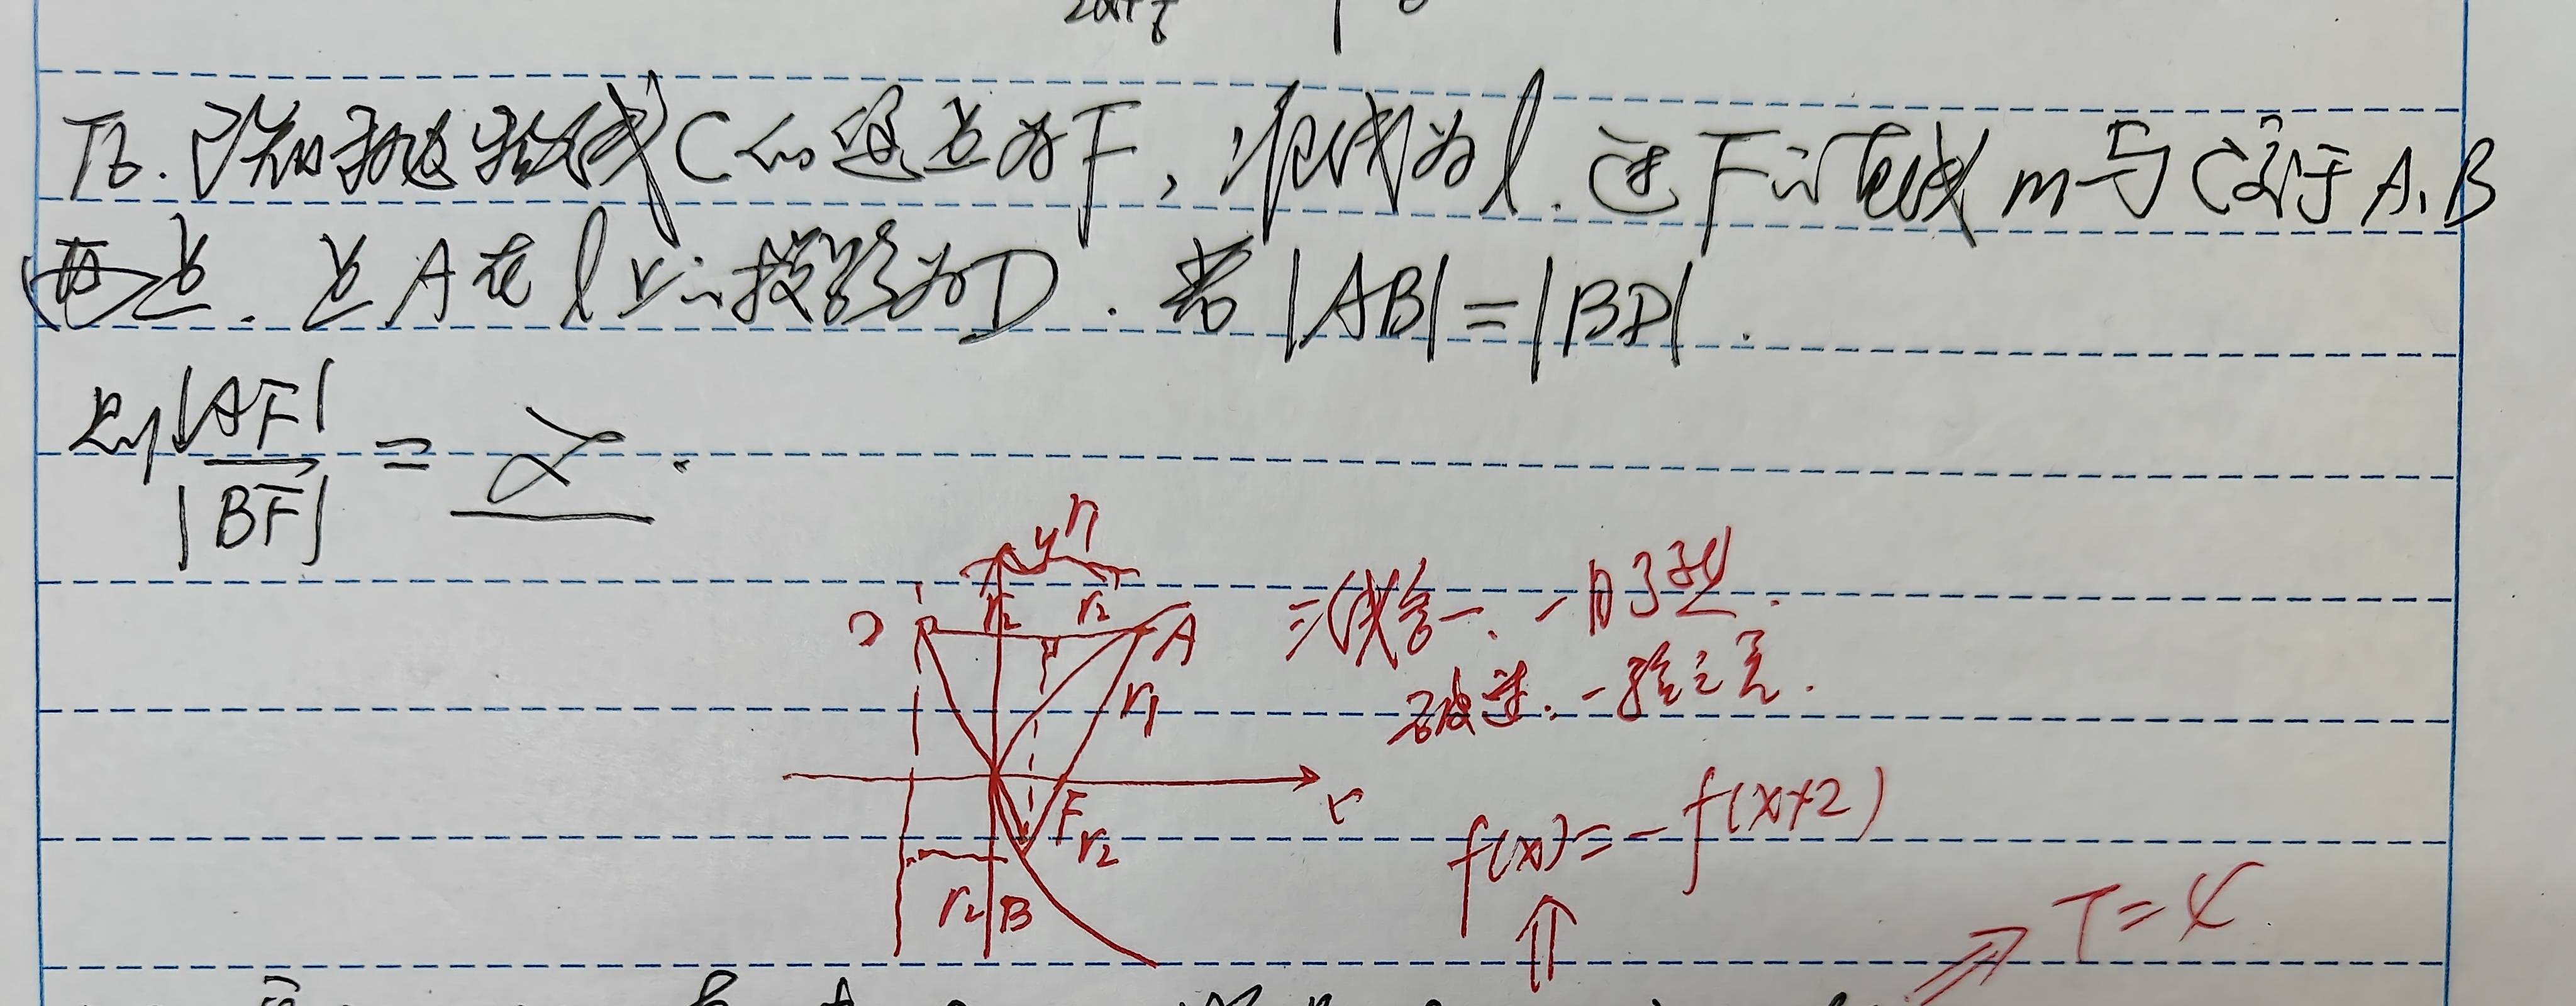 T6. 已知抛物线C的焦点为F，准线为l. 过F的直线m与C交于A、B
两点. 点A在l上的投影为D. 若|AB|=|BD|.
则|AF|/|BF| = 2.
y r₁
D r₂ r₂ A
r₁
F x
r₂
r₂ B
三线合一、
f(x)=-f(x+2)
⇑
⇒ T=4